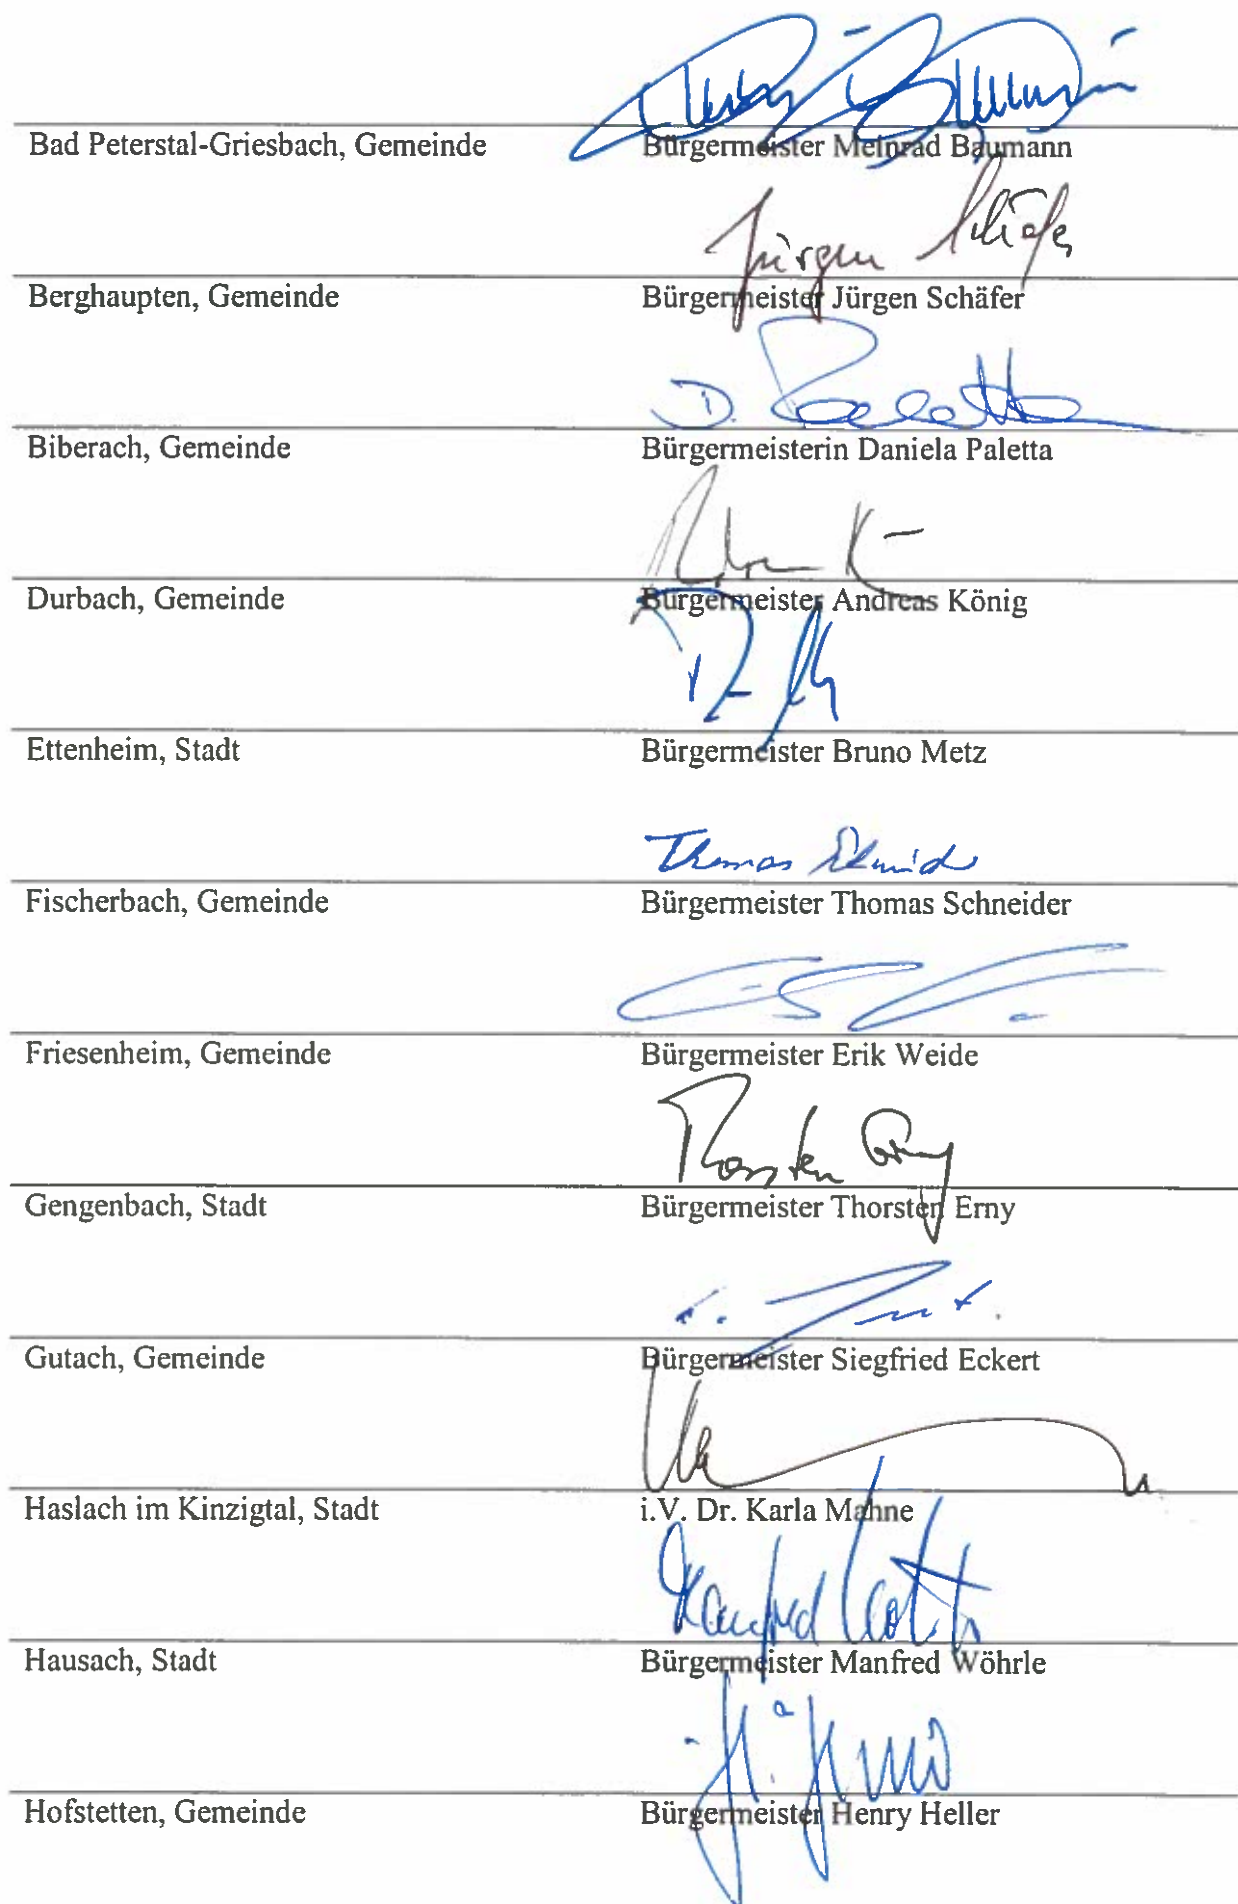 Bad Peterstal-Griesbach, Gemeinde Bürgermeister Meinrad Baumann
Jürgen Schäfer
Berghaupten, Gemeinde Bürgermeister Jürgen Schäfer
D. Paletta
Biberach, Gemeinde Bürgermeisterin Daniela Paletta
Durbach, Gemeinde Bürgermeister Andreas König
Ettenheim, Stadt Bürgermeister Bruno Metz
Thomas
Fischerbach, Gemeinde Bürgermeister Thomas Schneider
Friesenheim, Gemeinde Bürgermeister Erik Weide
Thorsten Erny
Gengenbach, Stadt Bürgermeister Thorsten Erny
Gutach, Gemeinde Bürgermeister Siegfried Eckert
Haslach im Kinzigtal, Stadt i.V. Dr. Karla Mahne
Manfred
Hausach, Stadt Bürgermeister Manfred Wöhrle
Hofstetten, Gemeinde Bürgermeister Henry Heller